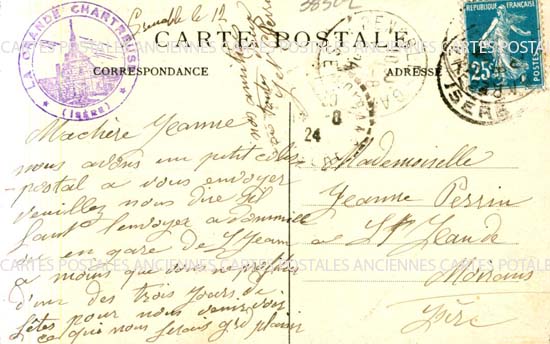 Grenoble le 12
38502
CARTE POSTALE
CORRESPONDANCE
ADRESSE
LA GRANDE CHARTREUSE
(ISÈRE)
RÉPUBLIQUE FRANÇAISE
25
GRENOBLE GARE
ISERE
8
24
Ma chère Jeanne
nous avons un petit colis
postal a vous envoyer
veuillez nous dire s'il
faut l'envoyer a domicile
ou en gare de St Jean
a moins que vous ne profitiez
d'un des trois jours de
fêtes pour nous venir voir
ce que nous ferais grd plaisir
Mademoiselle
Jeanne Perrin
a St Jean de
Moirans
Isère
CARTES POSTALES ANCIENNES CARTES POSTALES ANCIENNES CARTES POSTALES ANCIENNES